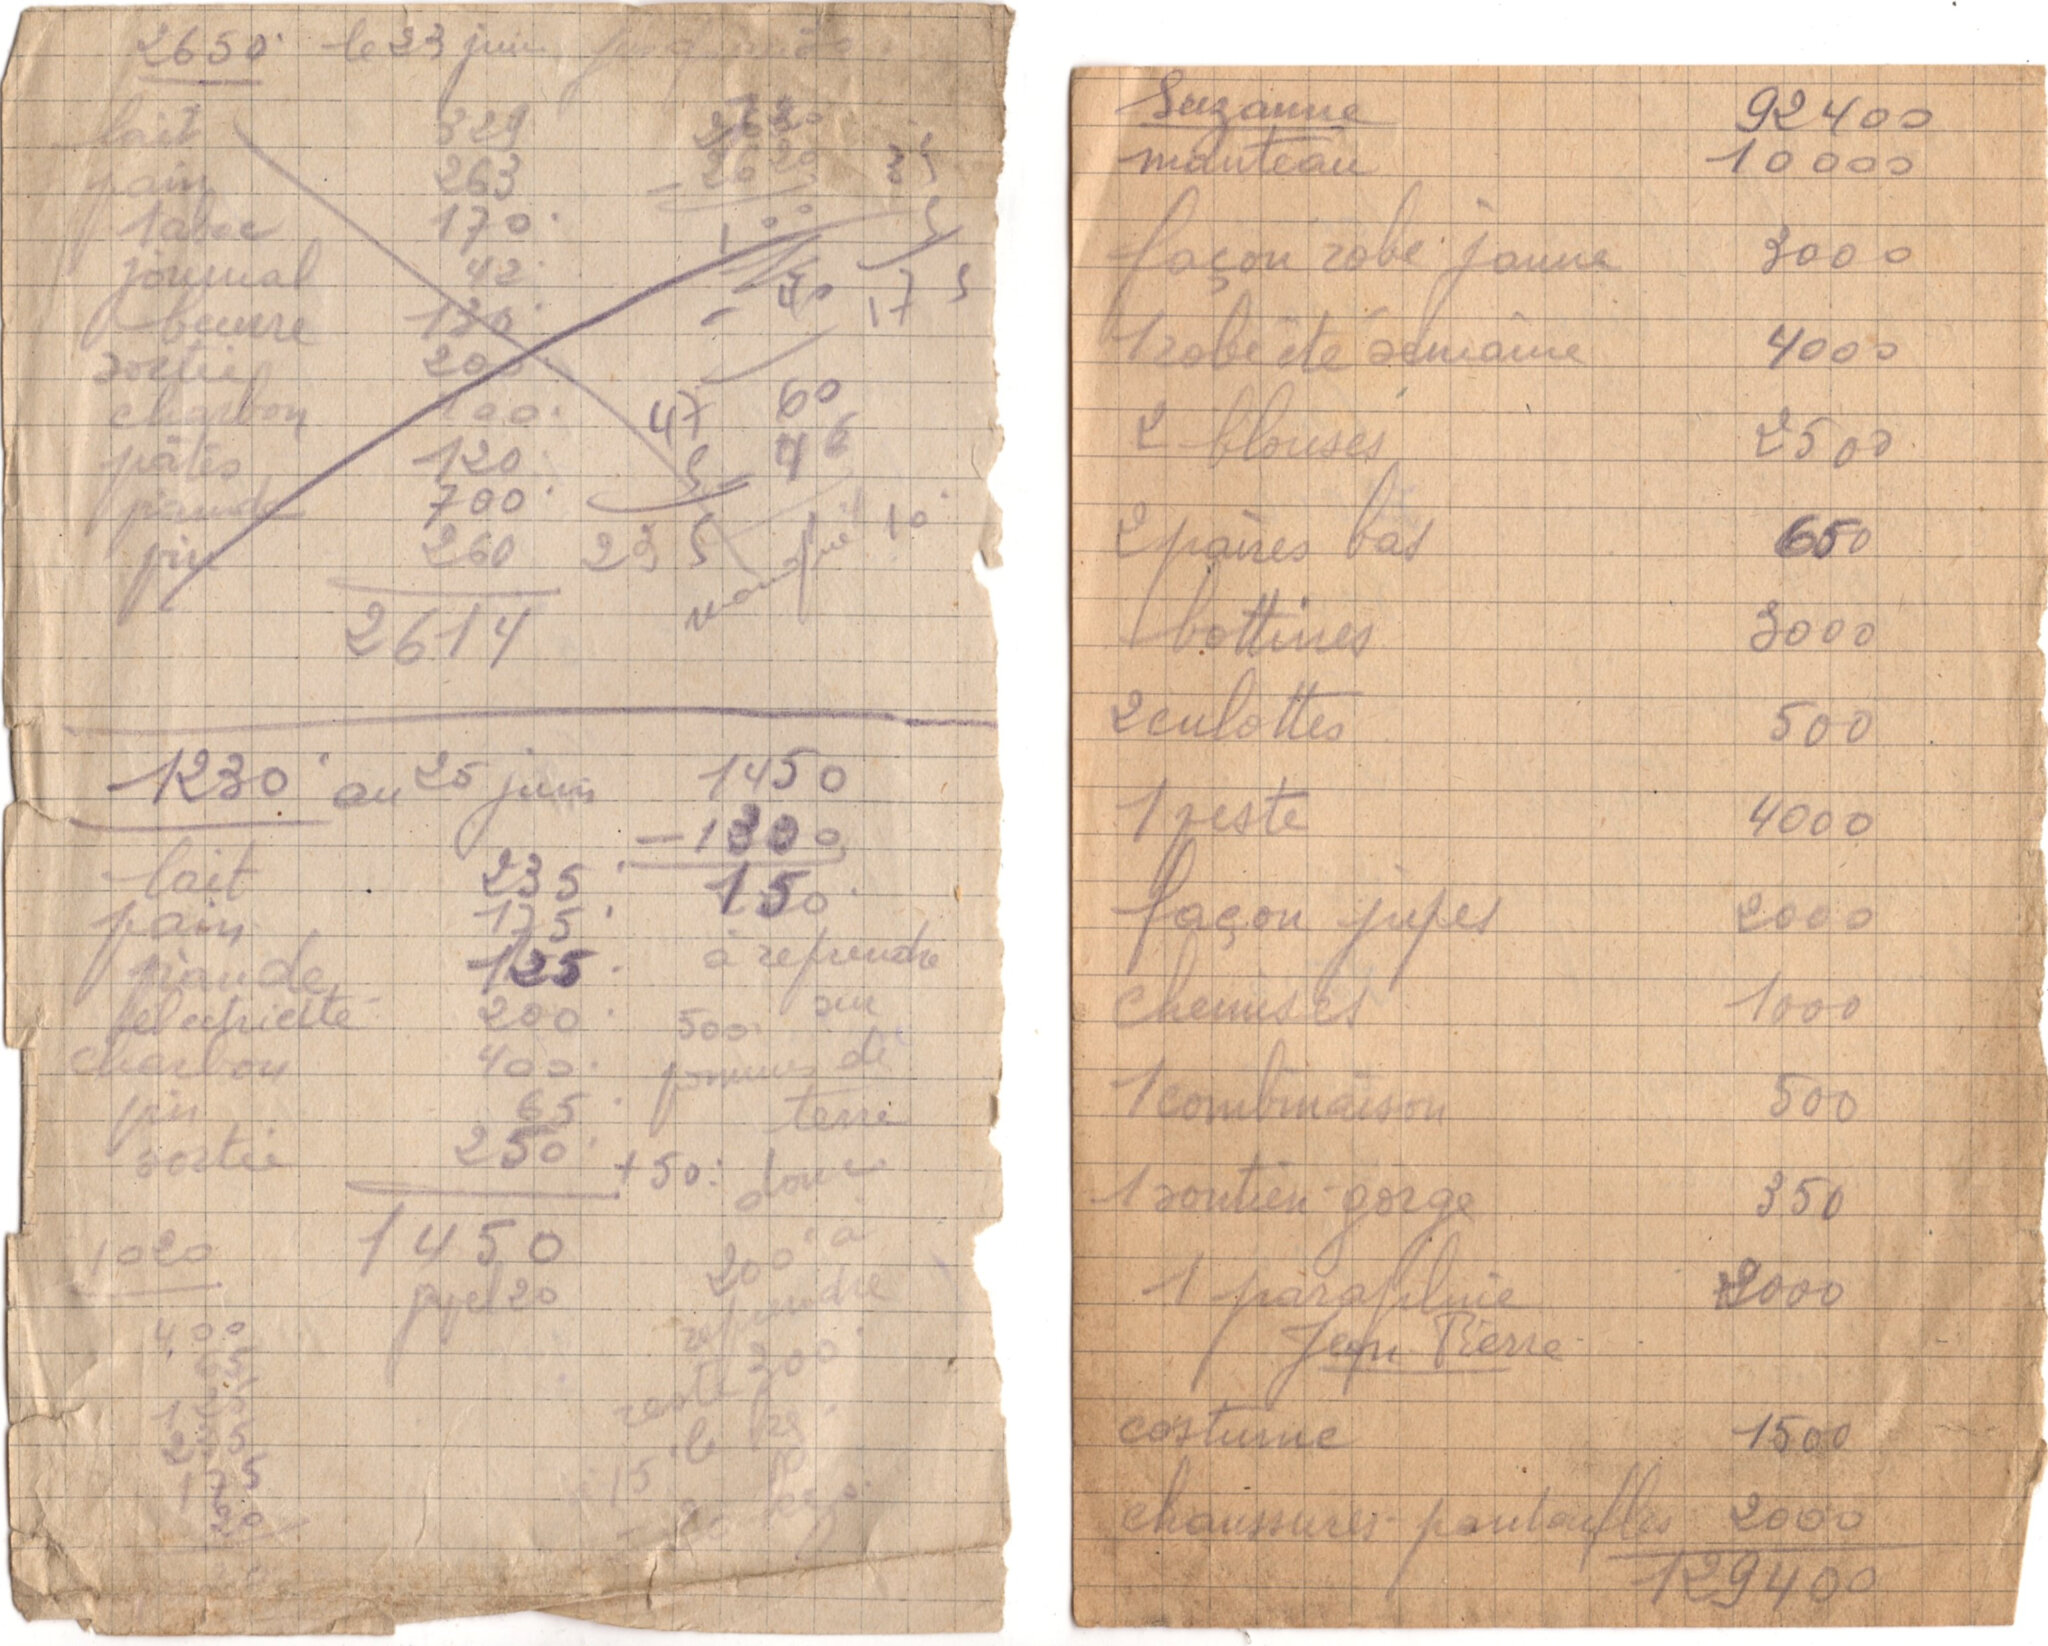 2650 le 23 juin
lait 329
pain 263
tabac 170
journal 42
beurre 130
sortie 200
charbon 100
pâtes 120
viande 700
vin 260
2614
2620
100
35
5
17 5
47
5
23 5
60
46
manque 10
1230 au 25 juin
lait 235
pain 175
viande 125
charbon 400
vin 65
sortie 250
1450
1450
- 1300
150
à reprendre
sur
500
pommes de
terre
+ 50
donc
200 à
reprendre
reste 300
1020
400
65
125
235
175
20
Suzanne 92400
manteau 10000
façon robe jaune 3000
1 robe été semaine 4000
2 blouses 2500
2 paires bas 650
bottines 3000
2 culottes 500
1 veste 4000
façon jupes 2000
chemises 1000
1 combinaison 500
1 soutien-gorge 350
1 parapluie 2000
Jean-Pierre
costume 1500
chaussures-pantoufles 2000
129400